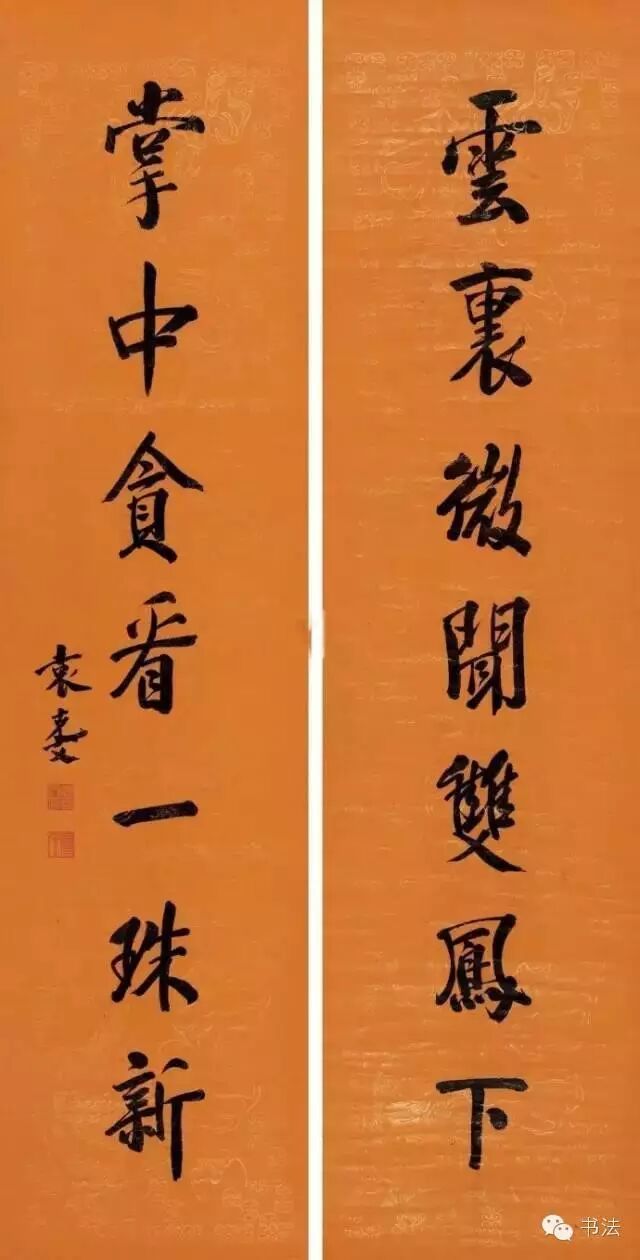 雲裏微聞雙鳳下
掌中貪看一珠新
袁克文
书法